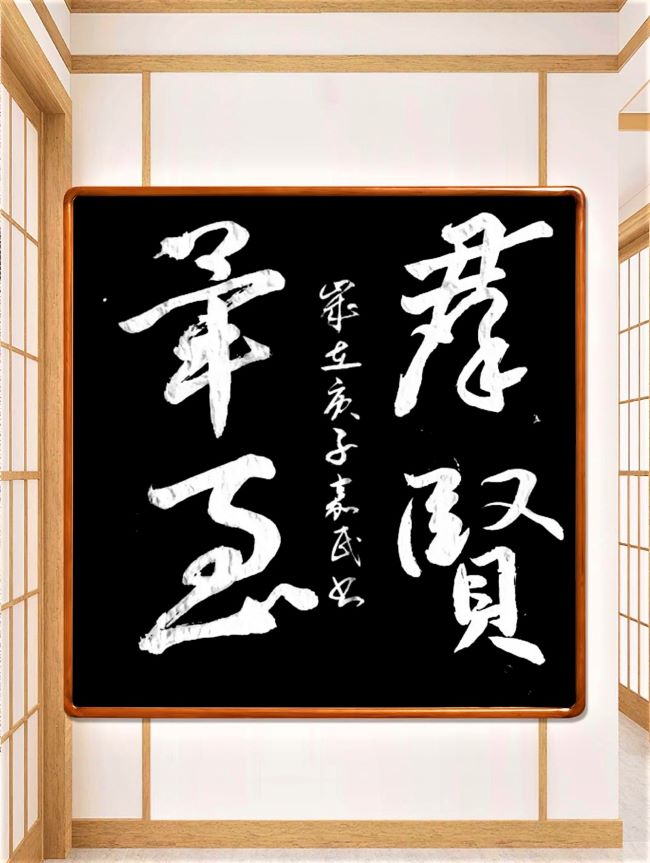 羣賢
畢至
歲在庚子嘉民书